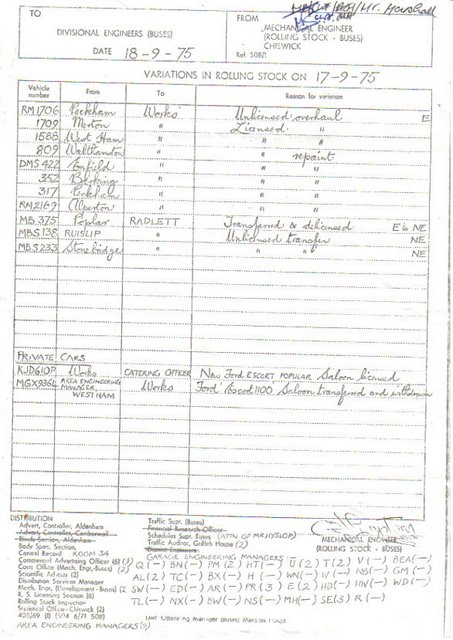 TO
DIVISIONAL ENGINEERS (BUSES)
DATE 18-9-75
FROM
MECHANICAL ENGINEER
(ROLLING STOCK - BUSES)
CHISWICK
Ref. 508/1
Mr. Marshall
VARIATIONS IN ROLLING STOCK ON 17-9-75
Vehicle number From To Reason for variation
RM1706 Peckham Works Unlicensed overhaul E
1709 Merton " Licensed "
1588 West Ham " " "
809 Walthamstow " " repaint
DMS 422 Enfield " " "
352 Barking " " "
317 Peckham " " "
RM2169 Alperton " " "
MB 375 Poplar RADLETT Transferred & delicensed E to NE
MBS 138 RUISLIP " Unlicensed transfer NE
MBS 233 Stonebridge " " " NE
PRIVATE CARS
KJD610P Works CATERING OFFICER New Ford ESCORT POPULAR Saloon licensed
MGX936L AREA ENGINEERING MANAGER, WEST HAM Works Ford Escort 1100 Saloon transferred and withdrawn
DISTRIBUTION
Advert. Controller, Aldenham
Advert. Controller, Camberwell
Body Series, Aldenham
Body Spec. Section,
Central Record ROOM 34
Commercial Advertising Officer (6) (3)
Costs Office (Mech. Engr. Buses) (2)
Scientific Adviser (2)
Distribution Services Manager
Mech. Engr. (Development-Buses) (2)
R. S. Licensing Section (6)
Rolling Stock Inspection
Statistical Office - Chiswick (2)
AREA ENGINEERING MANAGERS
Traffic Supt. (Buses)
Financial Research Officer
Schedules Supt. Buses (ATTN OF MR HYSLOP)
Traffic Auditor, Griffith House (2)
GARAGE ENGINEERING MANAGERS —
Q (—) BN (—) PM (2) HT (—) U (2) T (2) V (—) BEA (—)
AL (2) TC (—) BX (—) H (—) WN (—) IV (—) NB (—) GM (—)
SW (—) ED (—) AR (—) PR (3) E (2) HD (—) HW (—) WD (—)
TL (—) NX (—) BW (—) NS (—) MH (—) SE (3) R (—)
MECHANICAL ENGINEER
(ROLLING STOCK - BUSES)